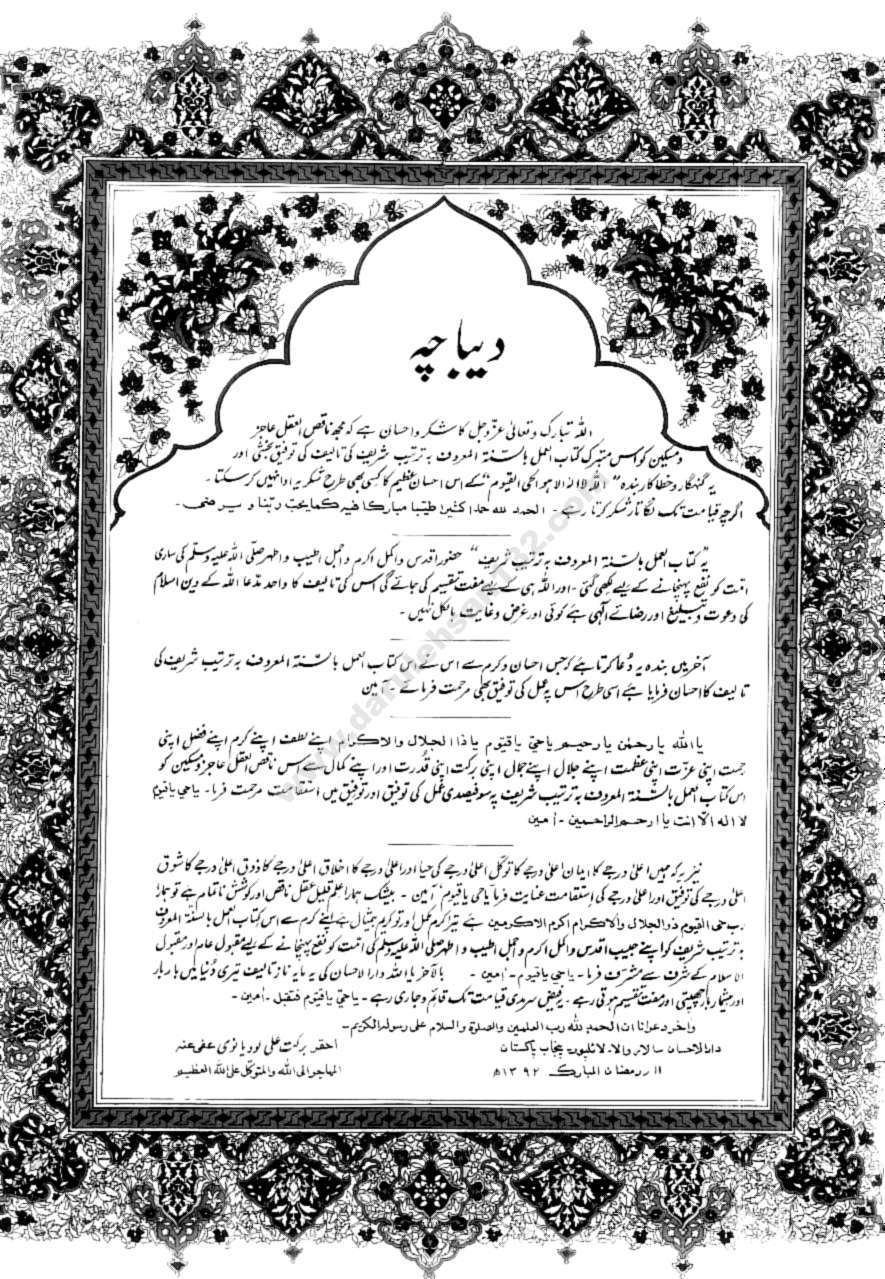 دیباچہ
اللہ تبارک وتعالیٰ عزّوجل کا شکر و احسان ہے کہ مجھ ناقص العقل عاجز
و مسکین کو اس متبرک کتاب العمل بالسّنۃ المعروف بہ ترتیب شریف کی تالیف کی توفیق بخشی اور
یہ گنہگار و خطاکار بندہ "اللہ لا الٰہ الا ہو الحی القیوم" کے اس احسانِ عظیم کا کسی بھی طرح شکریہ ادا نہیں کر سکتا۔
اگرچہ قیامت تک لگاتار شکر کرتا رہے۔ الحمد للہ حمدا کثیرا طیّبا مبارکا فیہ کما یحب ربّنا و یرضٰی۔
یہ کتاب العمل بالسّنۃ المعروف بہ ترتیب شریف" حضور اقدس و اکمل اکرم و اجمل اطیب و اطہر صلّی اللہ علیہ وسلم کی ساری
امّت کو نفع پہنچانے کے لیے لکھی گئی۔ اور اللہ ہی کے لیے مفت تقسیم کی جائے گی اس کی تالیف کا واحد مدّعا اللہ کے دین اسلام
کی دعوت و تبلیغ اور رضائے الٰہی ہے کوئی اور غرض و غایت بالکل نہیں۔
آخر میں بندہ یہ دُعا کرتا ہے کہ جس احسان و کرم سے اس نے اس کتاب العمل بالسّنۃ المعروف بہ ترتیب شریف کی
تالیف کا احسان فرمایا ہے اسی طرح اس پہ عمل کی توفیق بھی مرحمت فرمائے۔ آمین
یا اللہ یا رحمٰن یا رحیم یا حیّ یا قیّوم یا ذا الجلال والاکرام اپنے لطف اپنے کرم اپنے فضل اپنی
رحمت اپنی عزّت اپنی عظمت اپنے جلال اپنے جمال اپنی برکت اپنی قدرت اور اپنے کمال سے اس ناقص العقل عاجز و مسکین کو
اس کتاب العمل بالسّنۃ المعروف بہ ترتیب شریف پہ سو فیصدی عمل کی توفیق اور توفیق میں استقامت مرحمت فرما۔ یا حی یا قیوم
لا الہ الّا انت یا ارحم الراحمین۔ اٰمین
نیز یہ کہ ہمیں اعلیٰ درجے کا ایمان اعلیٰ درجے کا توکّل اعلیٰ درجے کی حیا اور اعلیٰ درجے کا اخلاق اعلیٰ درجے کا ذوق اعلیٰ درجے کا شوق
اعلیٰ درجے کی توفیق اور اعلیٰ درجے کی استقامت عنایت فرما یا حی یا قیوم۔ آمین۔ بیشک ہمارا علم قلیل عقل ناقص اور کوشش ناتمام ہے تو ہمارا
رب حی القیوم ذو الجلال والاکرام اکرم الاکرمین ہے تیرا کرم مکمل اور تو کریم بیمثال ہے اپنے کرم سے اس کتاب العمل بالسنۃ المعروف
بہ ترتیب شریف کو اپنے حبیب اقدس و اکمل اکرم و اجمل اطیب و اطہر صلی اللہ علیہ وسلم کی امت کو نفع پہنچانے کے لیے مقبول عام اور مقبول
الاسلام کے شرف سے مشرّف فرما۔ یا حی یا قیوم۔ اٰمین۔ بالآخر یا اللہ دارالاحسان کی یہ مایہ ناز تالیف تیری دُنیا میں بار بار
اور بیشمار بار چھپتی اور مفت تقسیم ہوتی رہے۔ یہ فیض سرمدی قیامت تک قائم و جاری رہے۔ یا حیّ یا قیّوم فتقبل۔ اٰمین۔
واٰخر دعوانا ان الحمد للہ رب العلمین والصلوٰۃ والسلام علی رسولہ الکریم۔
دارالاحسان سالار والا۔ لائلپور۔ پنجاب پاکستان
۱۱ رمضان المبارک ۱۳۹۲ھ
احقر برکت علی لودیانوی عفی عنہ
المہاجر الی اللہ والمتوکل علی اللہ العظیم